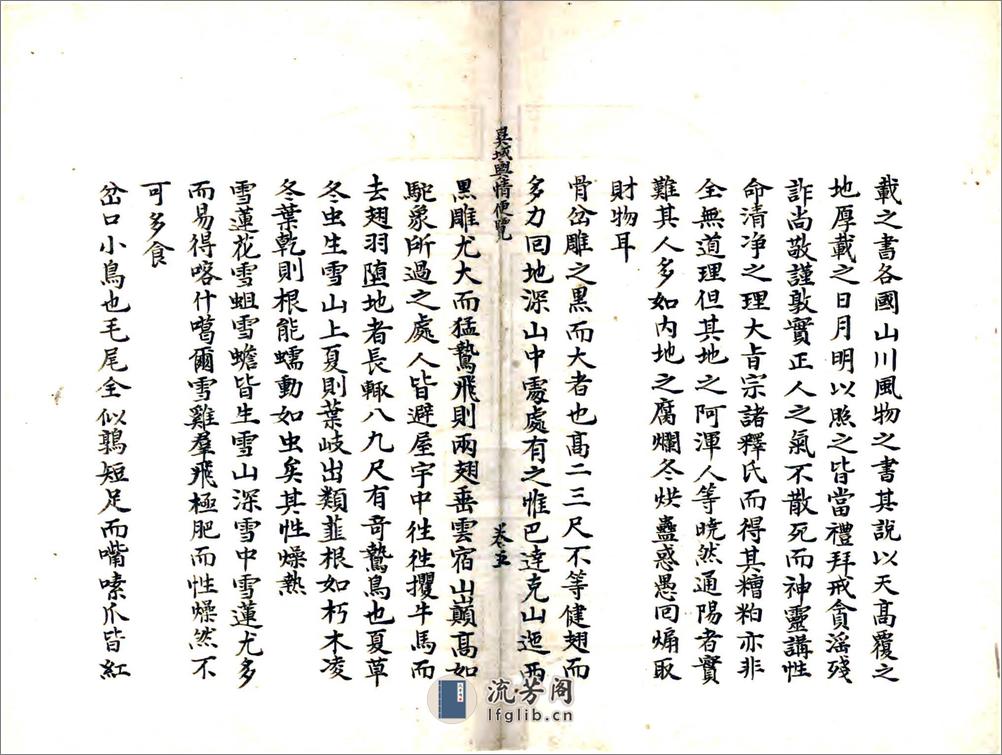 載之書各國山川風物之書其說以天高覆之
地厚載之日月明以照之皆當禮拜戒貪滛殘
詐尚敬謹敦實正人之氣不散死而神靈講性
命清净之理大旨宗諸釋氏而得其糟粕亦非
全無道理但其地之阿渾人等曉然通陽者實
難其人多如內地之腐爛冬烘蠱惑愚回煽取
財物耳
骨岔雕之黑而大者也高二三尺不等健翅而
多力回地深山中處處有之惟巴達克山迤西
異域輿情便覽
卷五
黑雕尤大而猛鷙飛則兩翅垂雲宿山巔高如
駝象所過之處人皆避屋宇中徃徃攫牛馬而
去翅羽墮地者長輙八九尺有竒鷙鳥也夏草
冬虫生雪山上夏則葉歧出類韮根如朽木凌
冬葉乾則根能蠕動如虫矣其性燥熱
雪蓮花雪蛆雪蟾皆生雪山深雪中雪蓮尤多
而易得喀什噶爾雪雞羣飛極肥而性燥然不
可多食
岔口小鳥也毛尾全似鶉短足而嘴嗉爪皆紅
流芳阁
lfglib.cn